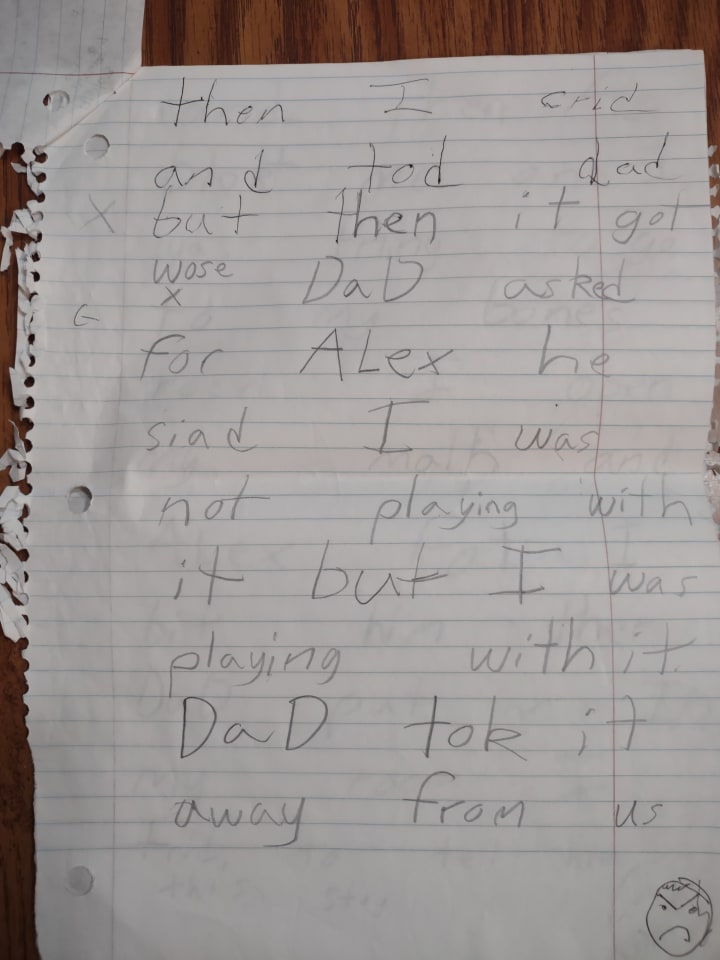 then I crid
and tod dad
X but then it got
wose DaD asked
x
G
for ALex he
siad I was
not playing with
it but I was
playing with it
DaD tok it
away from us